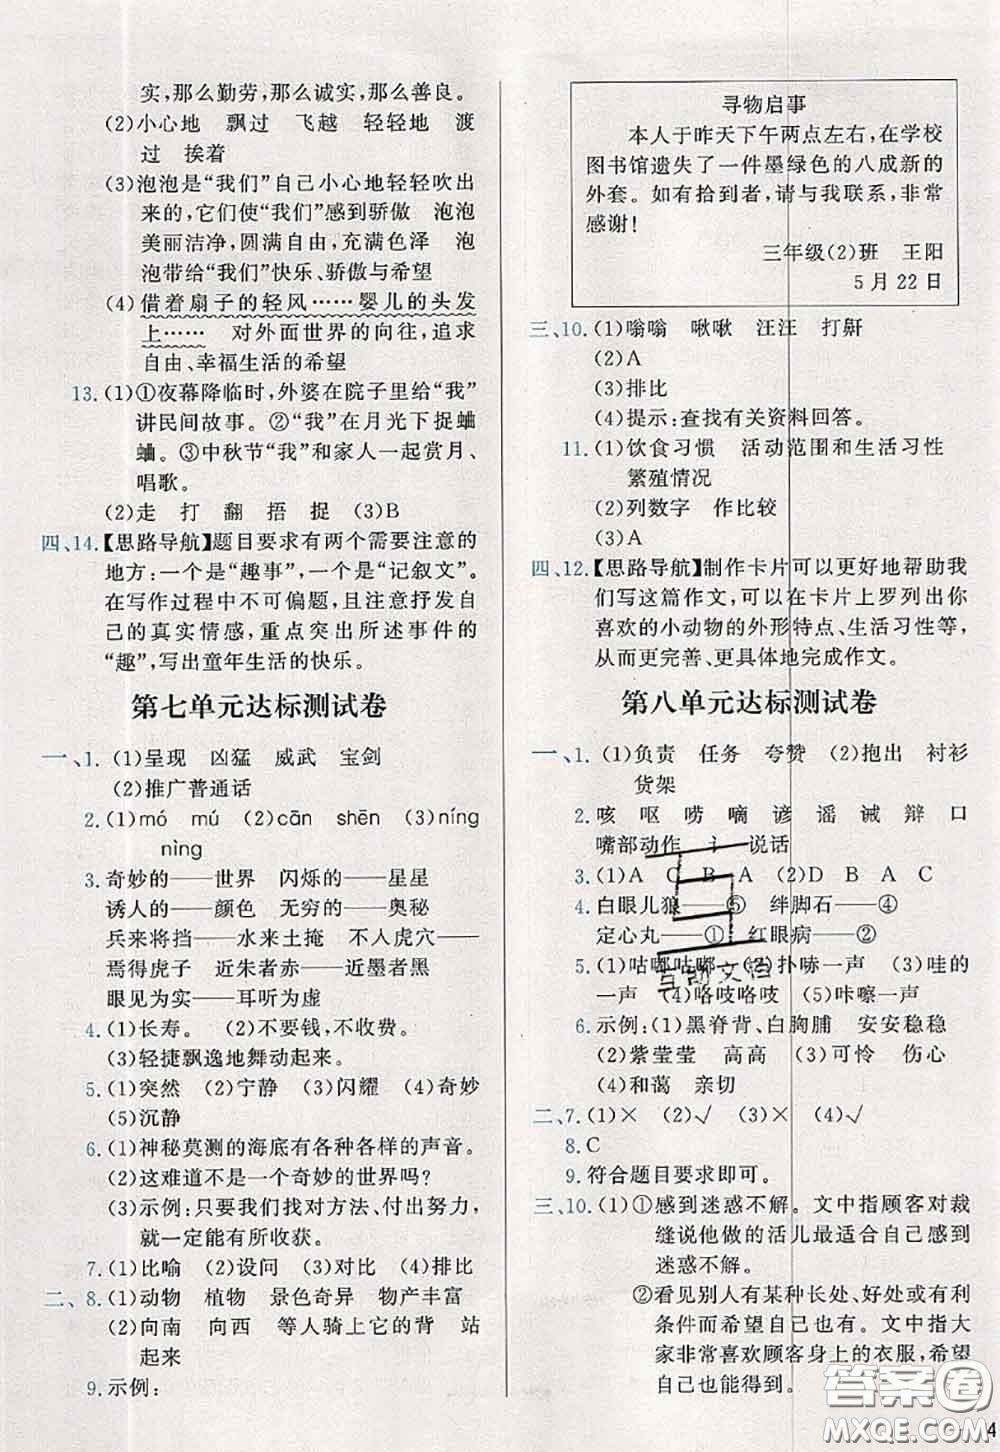 实,那么勤劳,那么诚实,那么善良。
(2)小心地 飘过 飞越 轻轻地 渡
过 挨着
(3)泡泡是“我们”自己小心地轻轻吹出
来的,它们使“我们”感到骄傲 泡泡
美丽洁净,圆满自由,充满色泽 泡
泡带给“我们”快乐、骄傲与希望
(4)借着扇子的轻风……婴儿的头发
上…… 对外面世界的向往,追求
自由、幸福生活的希望
13.(1)①夜幕降临时,外婆在院子里给“我”
讲民间故事。②“我”在月光下捉蛐
蛐。③中秋节“我”和家人一起赏月、
唱歌。
(2)走 打 翻 捂 捉 (3)B
四、14.【思路导航】题目要求有两个需要注意的
地方:一个是“趣事”,一个是“记叙文”。
在写作过程中不可偏题,且注意抒发自
己的真实情感,重点突出所述事件的
“趣”,写出童年生活的快乐。
第七单元达标测试卷
一、1.(1)呈现 凶猛 威武 宝剑
(2)推广普通话
2.(1)mó mú (2)cān shēn (3)níng
nìng
3.奇妙的——世界 闪烁的——星星
诱人的——颜色 无穷的——奥秘
兵来将挡——水来土掩 不入虎穴——
焉得虎子 近朱者赤——近墨者黑
眼见为实——耳听为虚
4.(1)长寿。(2)不要钱,不收费。
(3)轻捷飘逸地舞动起来。
5.(1)突然 (2)宁静 (3)闪耀 (4)奇妙
(5)沉静
6.(1)神秘莫测的海底有各种各样的声音。
(2)这难道不是一个奇妙的世界吗?
(3)示例:只要我们找对方法,付出努力,
就一定能有所收获。
7.(1)比喻 (2)设问 (3)对比 (4)排比
二、8.(1)动物 植物 景色奇异 物产丰富
(2)向南 向西 等人骑上它的背 站
起来
9.示例:
寻物启事
本人于昨天下午两点左右,在学校
图书馆遗失了一件墨绿色的八成新的
外套。如有拾到者,请与我联系,非常
感谢!
三年级(2)班 王阳
5月22日
三、10.(1)嗡嗡 啾啾 汪汪 打鼾
(2)A
(3)排比
(4)提示:查找有关资料回答。
11.(1)饮食习惯 活动范围和生活习性
繁殖情况
(2)列数字 作比较
(3)A
四、12.【思路导航】制作卡片可以更好地帮助我
们写这篇作文,可以在卡片上罗列出你
喜欢的小动物的外形特点、生活习性等,
从而更完善、更具体地完成作文。
第八单元达标测试卷
一、1.(1)负责 任务 夸赞 (2)抱出 衬衫
货架
2.咳 呕 唠 嘀 谚 谣 诫 辩 口
嘴部动作 讠 说话
3.(1)A C B A (2)D B A C
4.白眼儿狼——⑤ 绊脚石——④
定心丸——① 红眼病——②
5.(1)咕嘟咕嘟 (2)扑哧一声 (3)哇的
一声 (4)咯吱咯吱 (5)咔嚓一声
6.示例:(1)黑脊背、白胸脯 安安稳稳
(2)紫莹莹 高高 (3)可怜 伤心
(4)和蔼 亲切
二、7.(1)× (2)√ (3)× (4)√
8.C
9.符合题目要求即可。
三、10.(1)①感到迷惑不解。文中指顾客对裁
缝说他做的活儿最适合自己感到
迷惑不解。
②看见别人有某种长处、好处或有利
条件而希望自己也有。文中指大
家非常喜欢顾客身上的衣服,希望
自己也能得到。
答案圈
MXQE.COM
4